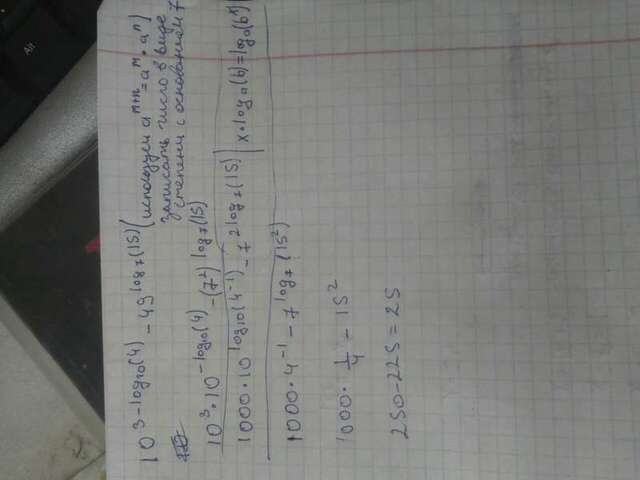 10^(3-log₁₀(4)) - 49^(log₇(15)) (используем a^(m+n) = a^m · a^n)
записать число в виде
степени с основанием 7
10³ · 10^(-log₁₀(4)) - (7²)^(log₇(15))
1000 · 10^(log₁₀(4⁻¹)) - 7^(2log₇(15)) | x · log_a(b) = log_a(b^x)
1000 · 4⁻¹ - 7^(log₇(15²))
1000 · 1/4 - 15²
250 - 225 = 25
Alt